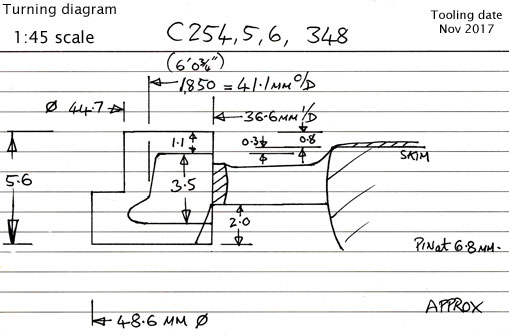 Turning diagram
1:45 scale
C254,5,6, 348
Tooling date
Nov 2017
(6'0¾")
1,850 = 41.1MM O/D
Ø 44.7
36.6MM I/D
1.1
0.3
0.8
SKIM
5.6
3.5
2.0
PIN at 6.8MM.
48.6 MM Ø
APPROX